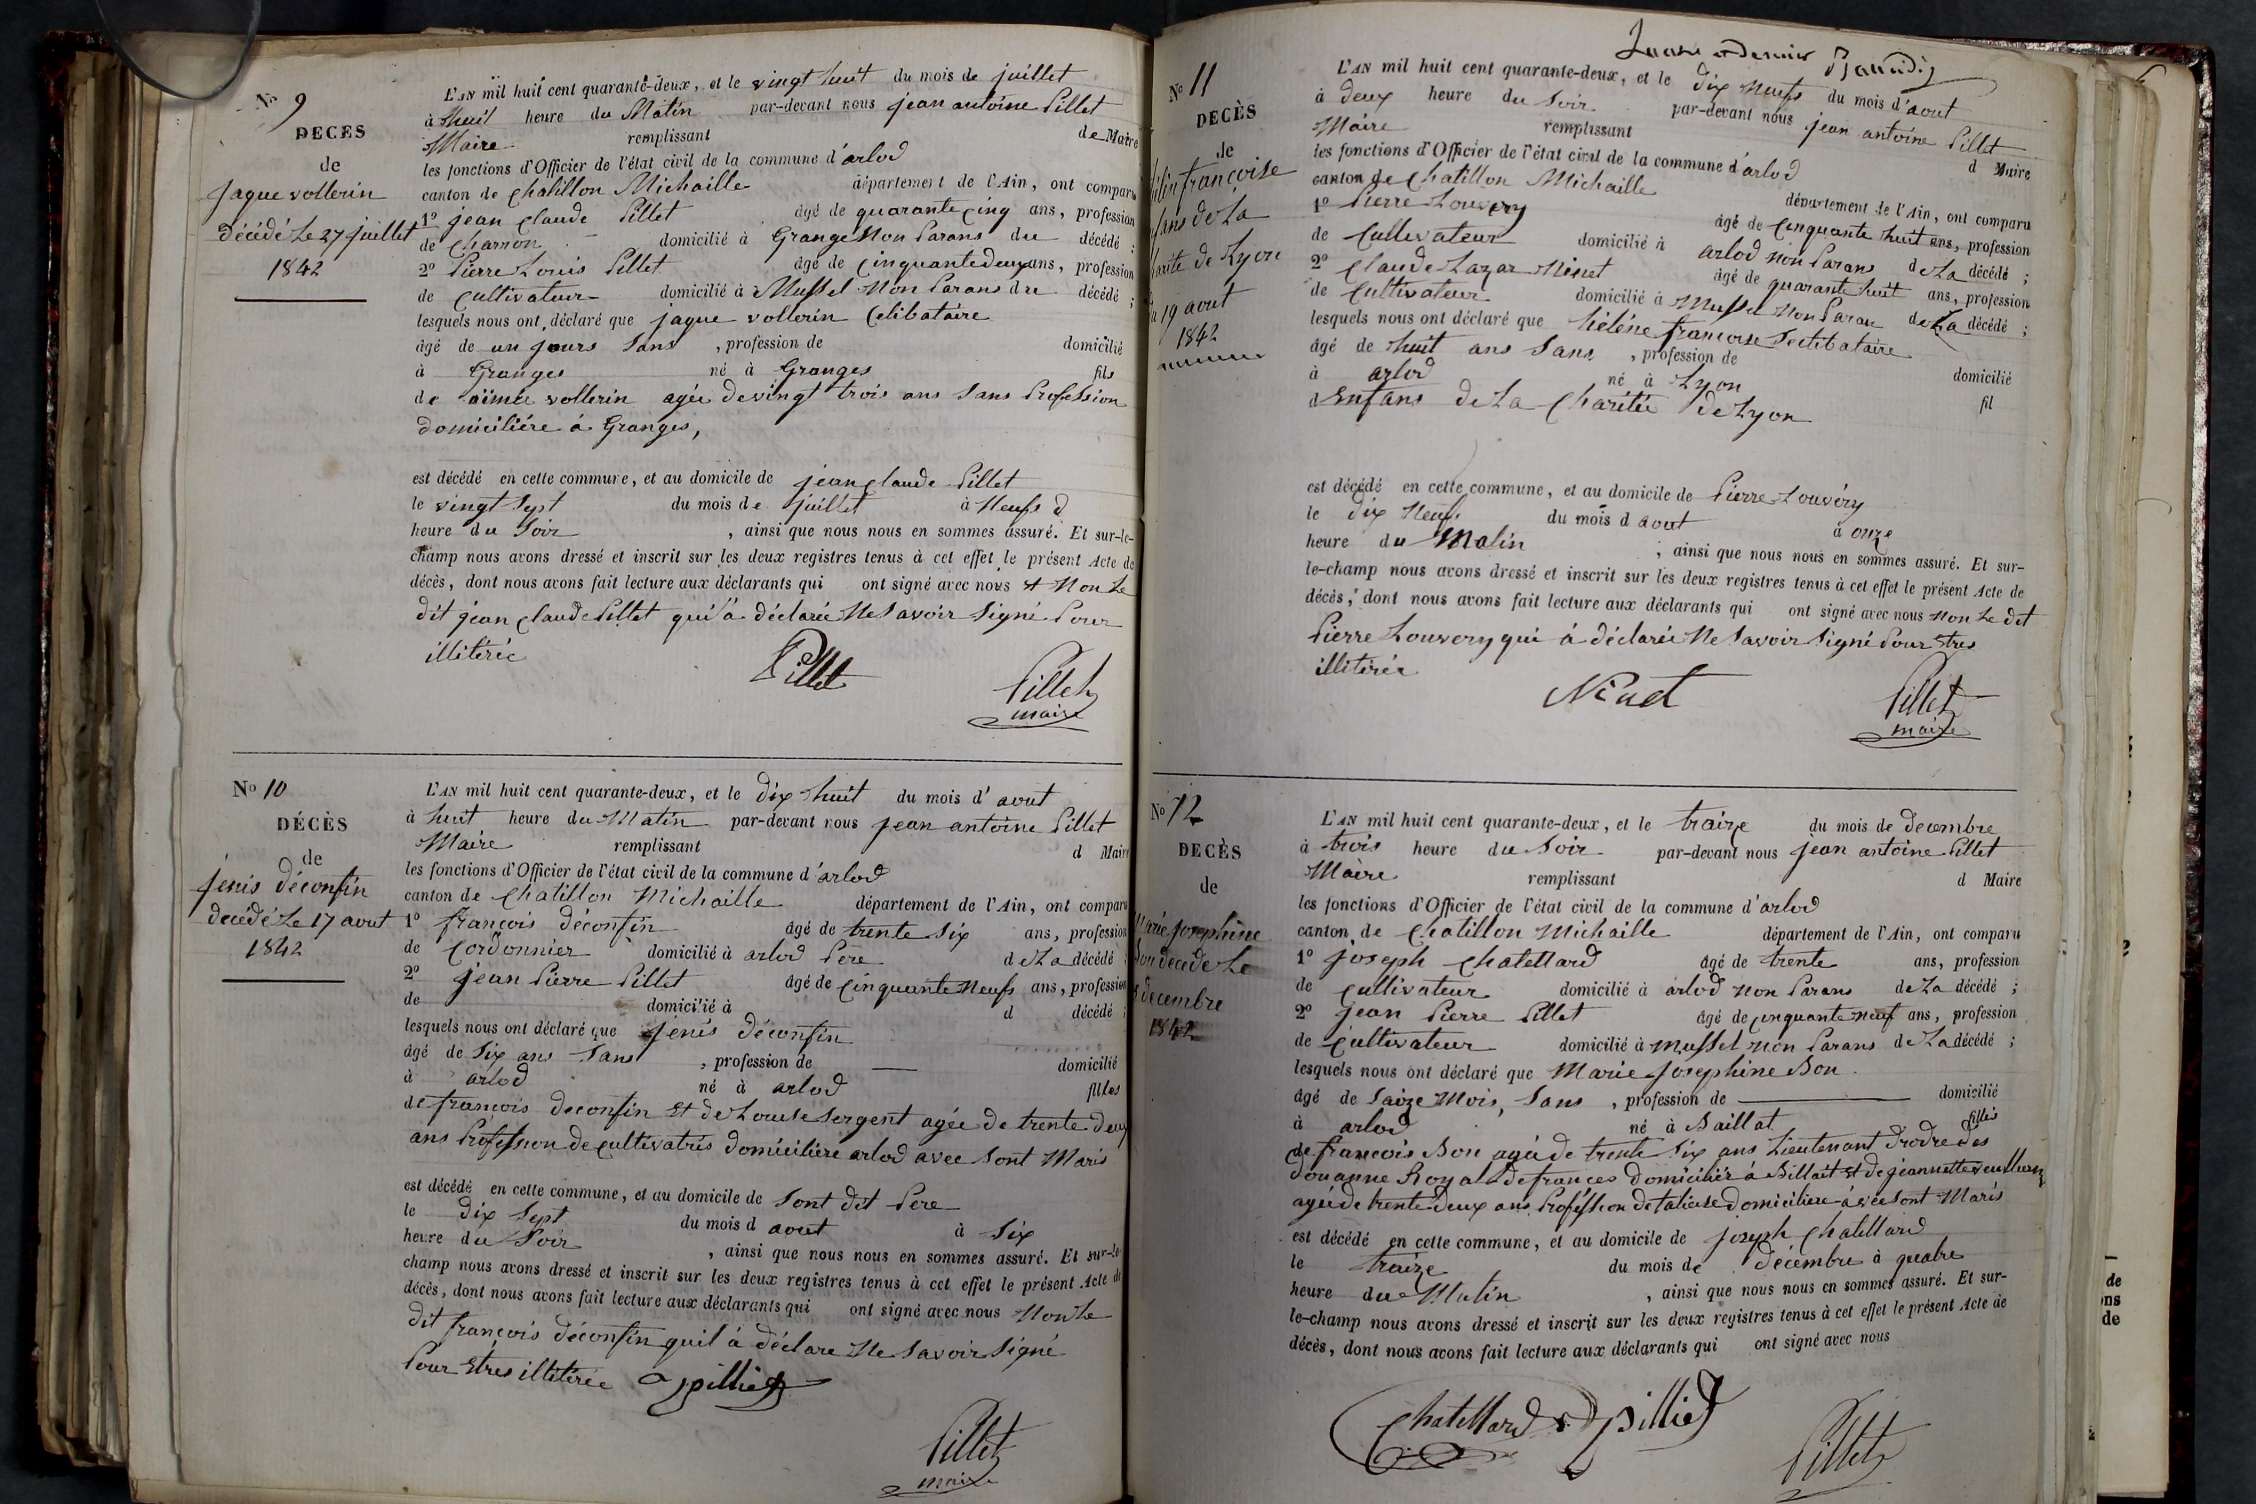 Nº 9
DECES
de
jaque vollerin
décédé le 27 juillet
1842
L'AN mil huit cent quarante-deux, et le vingt huit du mois de juillet
à huit heure du Matin par-devant nous jean antoine Pillet
Maire remplissant de Maire
les fonctions d'Officier de l'état civil de la commune d'arlod
canton de Chatillon Michaille département de l'Ain, ont comparu
1º jean Claude Pillet âgé de quarante cinq ans, profession
de Charron domicilié à Granges Non Parans du décédé ;
2º Pierre Louis Pillet âgé de cinquante deux ans, profession
de Cultivateur domicilié à Mussel Non Parans du décédé ;
lesquels nous ont déclaré que jaque vollerin Celibataire
âgé de un jours Sans , profession de domicilié
à Granges né à Granges fils
de aimée vollerin agée de vingt trois ans Sans Profession
domicilière à Granges,
est décédé en cette commune, et au domicile de jean Claude Pillet
le vingt Sept du mois de juillet à Neufs d
heure du Soir , ainsi que nous nous en sommes assuré. Et sur-le-
champ nous avons dressé et inscrit sur les deux registres tenus à cet effet le présent Acte de
décès, dont nous avons fait lecture aux déclarants qui ont signé avec nous et Non Le
dit jean Claude Pillet qui a déclarée Ne Savoir Signé Pour
illitérée
Pillet
Pillet
maire
Nº 10
DÉCÈS
de
jenis déconfin
décédé Le 17 aout
1842
L'AN mil huit cent quarante-deux, et le dix huit du mois d'aout
à huit heure du Matin par-devant nous jean antoine Pillet
Maire remplissant d Maire
les fonctions d'Officier de l'état civil de la commune d'arlod
canton de Chatillon Michaille département de l'Ain, ont comparu
1º françois déconfin âgé de trente Six ans, profession
de Cordonnier domicilié à arlod Père de La décédé ;
2º jean Pierre Pillet âgé de Cinquante Neufs ans, profession
de domicilié à d décédé ;
lesquels nous ont déclaré que jenis déconfin
âgé de Six ans Sans , profession de domicilié
à arlod né à arlod filles
de françois deconfin et de Louise Sergent agée de trente deux
ans Profession de Cultivatris domicilière arlod avec Sont Maris
est décédé en cette commune, et au domicile de Sont dit Père
le dix Sept du mois d aout à Six
heure du Soir , ainsi que nous nous en sommes assuré. Et sur-le-
champ nous avons dressé et inscrit sur les deux registres tenus à cet effet le présent Acte de
décès, dont nous avons fait lecture aux déclarants qui ont signé avec nous Non Le
dit françois déconfin quil à déclare Ne Savoir Signé
Pour Etres illitérée jpilliet
Pillet
maire
Nº 11
DECÈS
de
françoise
de La
de Lyon
19 aout
1842
L'AN mil huit cent quarante-deux, et le dix Neufs du mois d'aout
à deux heure du Soir par-devant nous jean antoine Pillet
Maire remplissant d Maire
les fonctions d'Officier de l'état civil de la commune d'arlod
canton de Chatillon Michaille département de l'Ain, ont comparu
1º Pierre Louvery âgé de Cinquante huit ans, profession
de Cultivateur domicilié à arlod Non Parans de La décédé ;
2º Claude Lazar Ninet âgé de quarante huit ans, profession
de Cultivateur domicilié à Mussel Non Paran de La décédé ;
lesquels nous ont déclaré que hélène françoise Selibataire
âgé de huit ans Sans , profession de domicilié
à arlod né à Lyon fil
d Enfans de La Charitée de Lyon
est décédé en cette commune, et au domicile de Pierre Louvéry
le dix Neufs du mois d aout à onze
heure du Matin ; ainsi que nous nous en sommes assuré. Et sur-
le-champ nous avons dressé et inscrit sur les deux registres tenus à cet effet le présent Acte de
décès, dont nous avons fait lecture aux déclarants qui ont signé avec nous Non Le dit
Pierre Louvery qui à déclarée Ne Savoir Signé Pour Etres
illitérée
Ninet
Pillet
maire
Nº 12
DECÈS
de
Marie josephine
Bon décédé Le
decembre
1842
L'AN mil huit cent quarante-deux, et le traize du mois de decembre
à trois heure du Soir par-devant nous jean antoine Pillet
Maire remplissant d Maire
les fonctions d'Officier de l'état civil de la commune d'arlod
canton de Chatillon Michaille département de l'Ain, ont comparu
1º joseph Chatellard âgé de trente ans, profession
de Cultivateur domicilié à arlod Non Parans de La décédé ;
2º jean Pierre Pillet âgé de cinquante neuf ans, profession
de Cultivateur domicilié à Mussel Non Parans de La décédé ;
lesquels nous ont déclaré que Marie josephine Bon
âgé de Saize Mois, Sans , profession de domicilié
à arlod né à Baillat filles
de françois Bon agée de trente Six ans Lieutenant drodre des
douanne Royal de frances domicilièr à Billiait et de jeannette
agée de trente deux ans Profession de talieuse domicilière avec Sont Maris
est décédé en cette commune, et au domicile de joseph Chatellard
le traize du mois de décembre à quatre
heure du Matin , ainsi que nous nous en sommes assuré. Et sur-
le-champ nous avons dressé et inscrit sur les deux registres tenus à cet effet le présent Acte de
décès, dont nous avons fait lecture aux déclarants qui ont signé avec nous
Chatellard jpilliet
Pillet